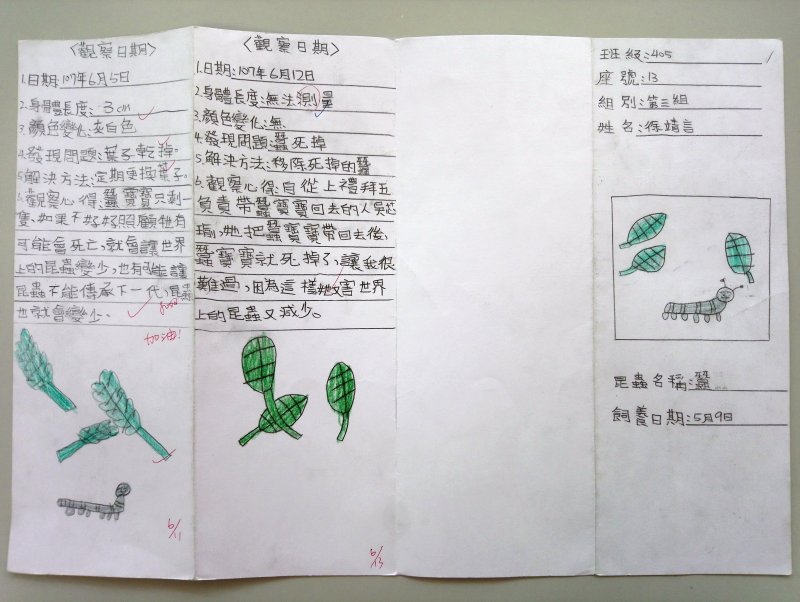 〈觀察日期〉
1.日期:107年6月5日
2.身體長度:3cm
3.顏色變化:灰白色
4.發現問題:葉子乾掉。
5.解決方法:定期更換葉子。
6.觀察心得:蠶寶寶只剩一
隻,如果不好好照顧牠有
可能會死亡,就會讓世界
上的昆蟲變少,也有可能讓
昆蟲不能傳承下一代,昆蟲
也就會變少。
加油!
6/11
〈觀察日期〉
1.日期:107年6月12日
2.身體長度:無法測量
3.顏色變化:無
4.發現問題:蠶死掉
5.解決方法:移除死掉的蠶
6.觀察心得:自從上禮拜五
負責帶蠶寶寶回去的人吳芯
瑜,她把蠶寶寶帶回去後,
蠶寶寶就死掉了,讓我很
難過,因為這樣她又害世界
上的昆蟲又減少。
6/13
班級:405
座號:13
組別:第三組
姓名:徐靖言
昆蟲名稱:蠶
飼養日期:5月9日